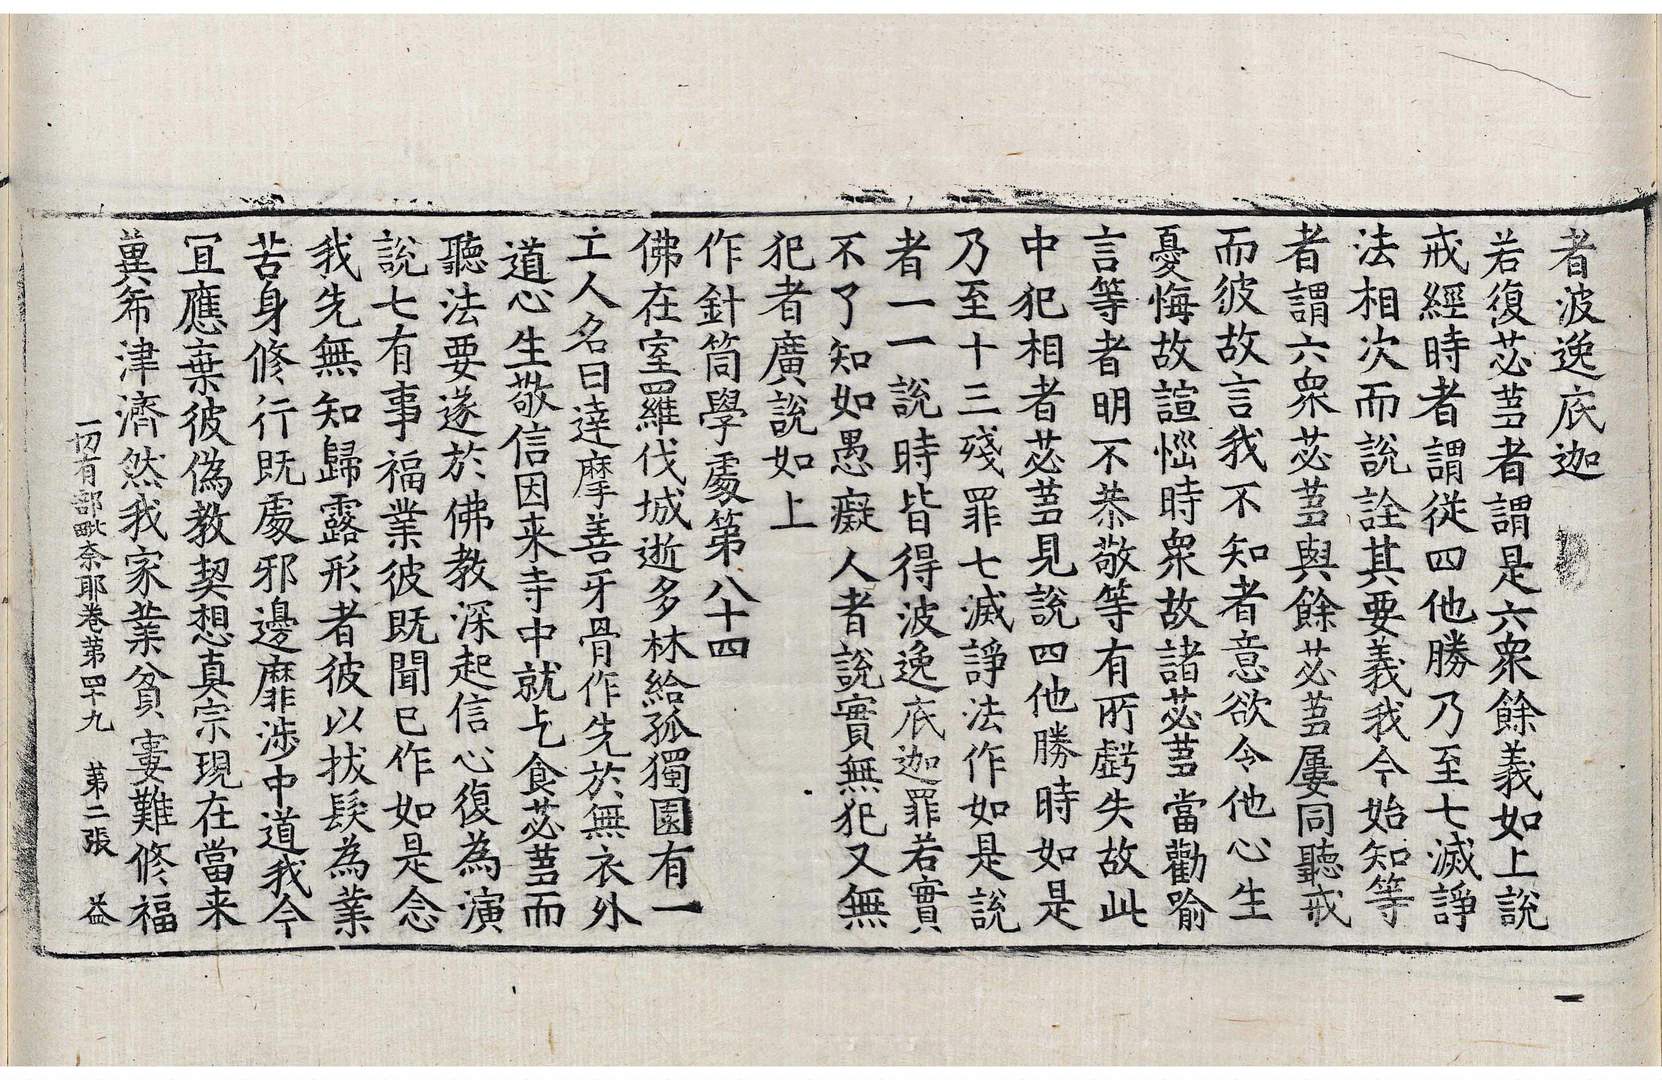 者波逸底迦
若復苾芻者謂是六衆餘義如上說
戒經時者謂從四他勝乃至七滅諍
法相次而說詮其要義我今始知等
者謂六衆苾芻與餘苾芻屢同聽戒
而彼故言我不知者意欲令他心生
憂悔故諠惱時衆故諸苾芻當勸喻
言等者明不恭敬等有所虧失故此
中犯相者苾芻見說四他勝時如是
乃至十三殘罪七滅諍法作如是說
者一一說時皆得波逸底迦罪若實
不了知如愚癡人者說實無犯又無
犯者廣說如上
作針筒學處第八十四
佛在室羅伐城逝多林給孤獨園有一
工人名曰達摩善牙骨作先於無衣外
道心生敬信因来寺中就乞食苾芻而
聽法要遂於佛教深起信心復為演
說七有事福業彼既聞已作如是念
我先無知歸露形者彼以拔髮為業
苦身修行既處邪邊靡涉中道我今
冝應棄彼偽教契想真宗現在當来
兾希津濟然我家業貧寠難修福
一切有部毗奈耶卷第四十九 第二張 益